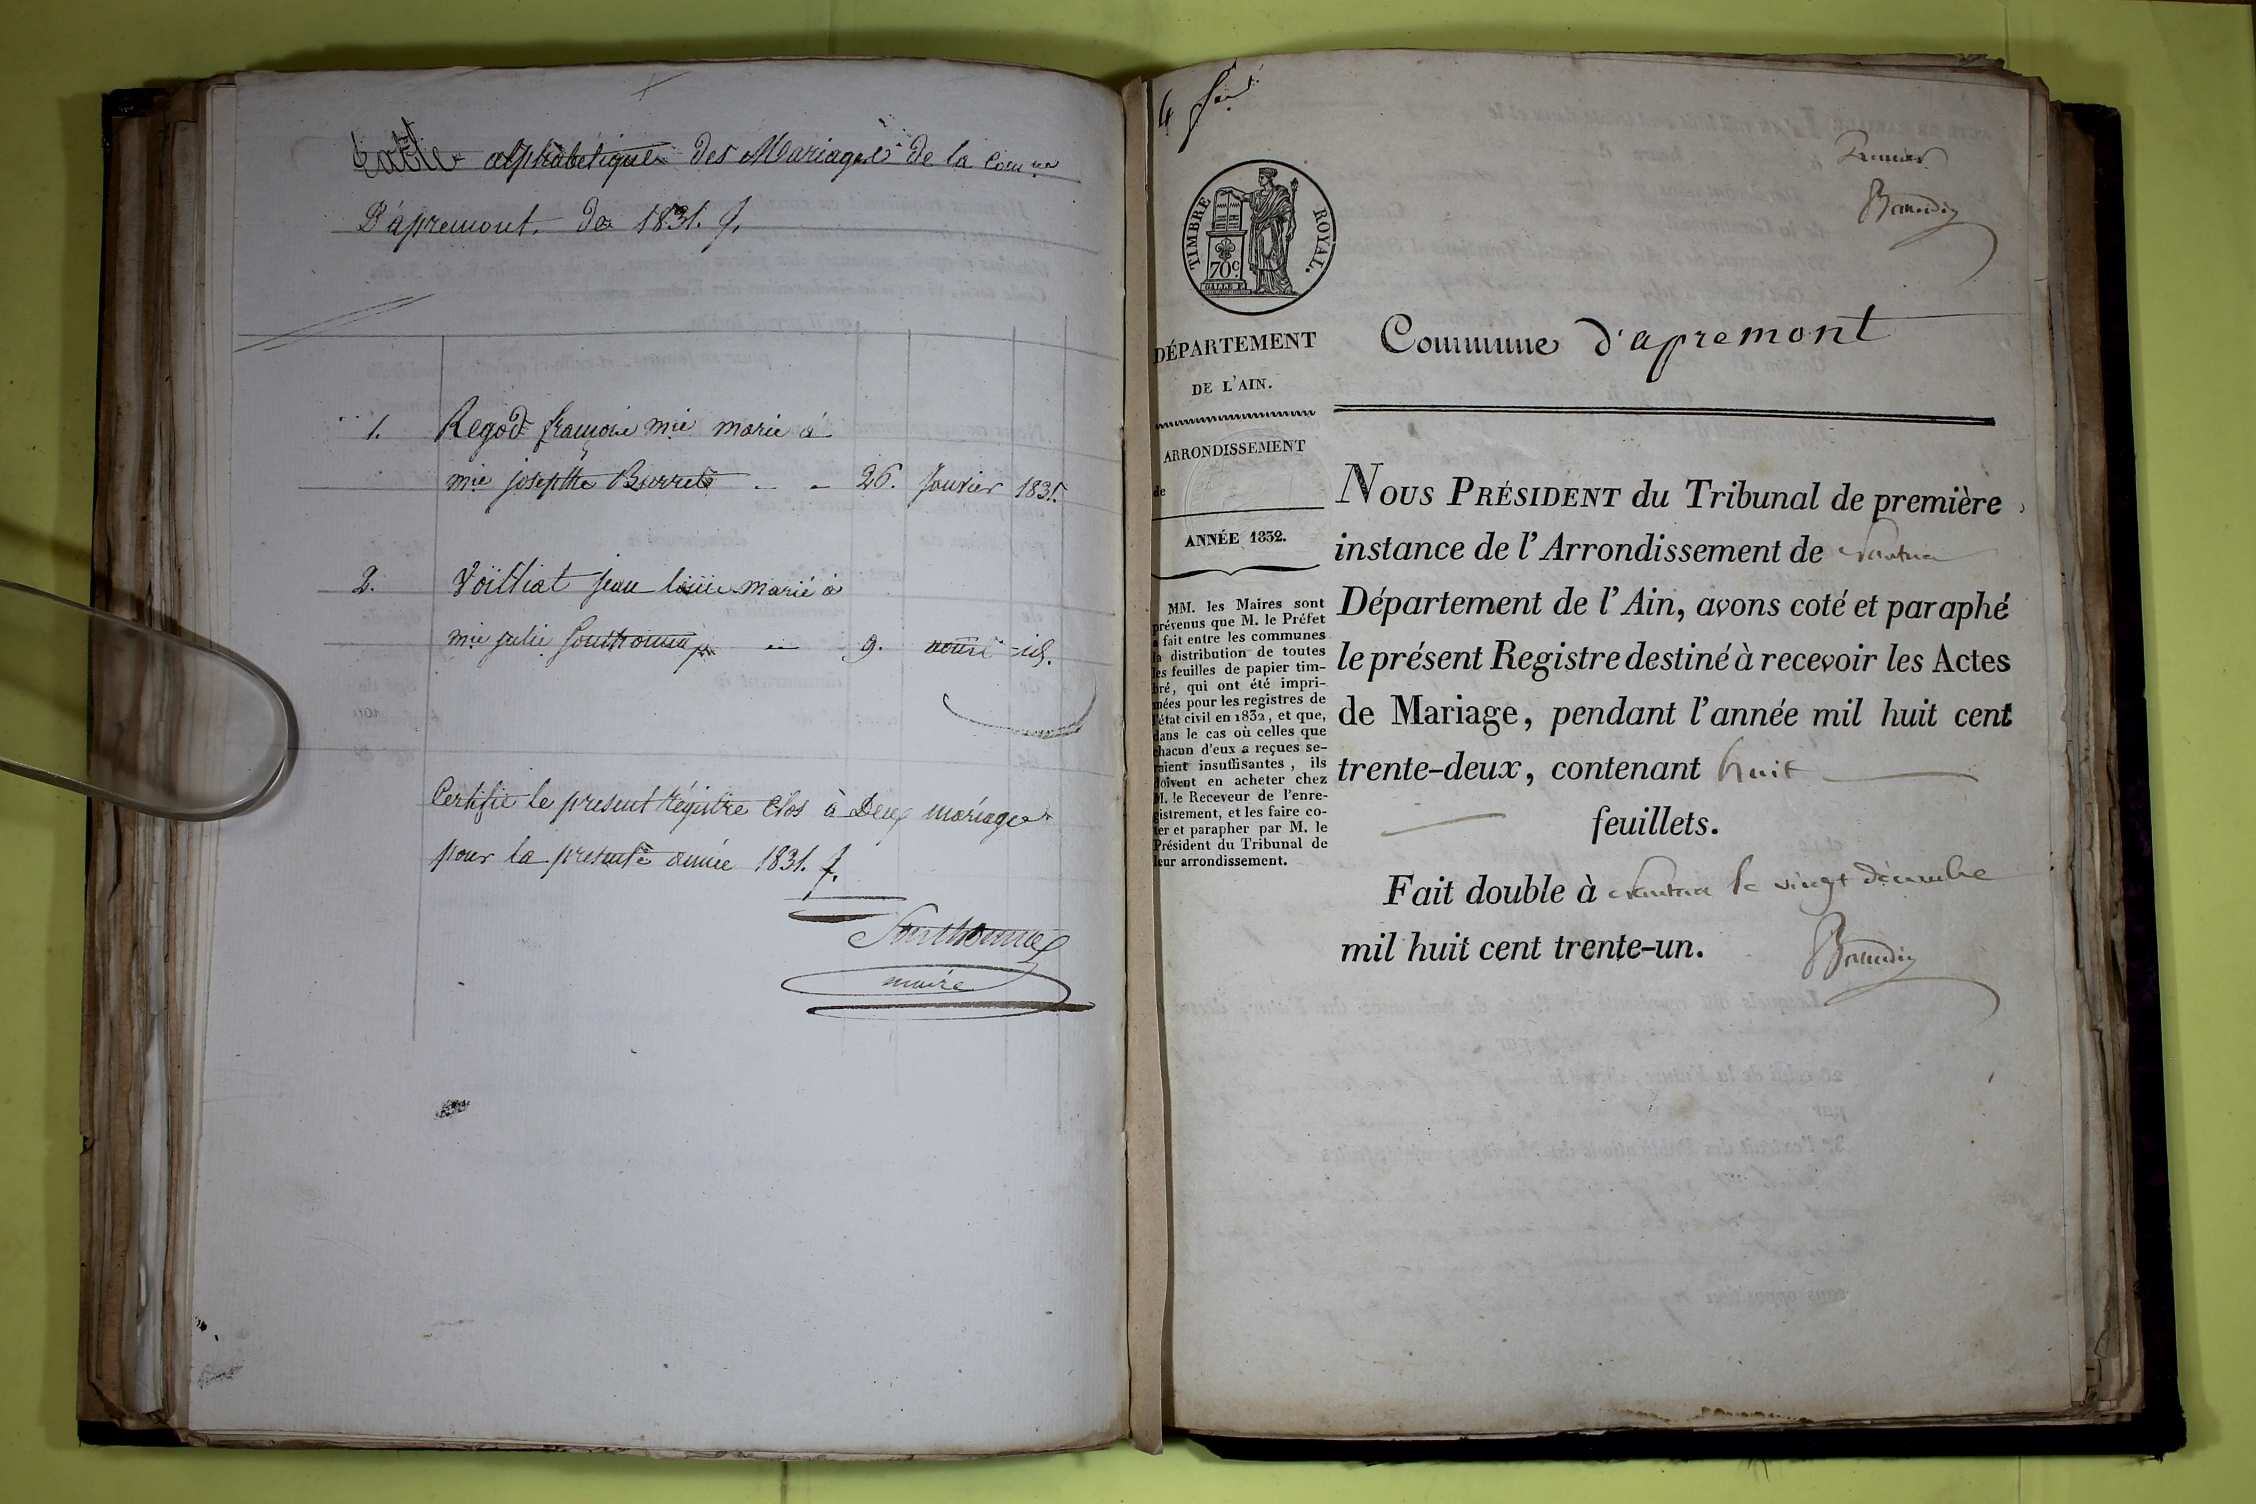 Table alphabétique des Mariages de la Com.ne
D'apremont. de 1831. f.
1. Regod françois mie marié à
mie josephte Burret - - 26. janvier 1831.
2. Voilliat jean louis marié à
mie julie Gonthonnax - 9. avril id.
Certifie le present régistre clos à Deux mariages
pour la presente année 1831. f.
Gonthonnax
maire
4 feuil.
Premier
TIMBRE ROYAL.
70c.
DÉPARTEMENT
DE L'AIN.
ARRONDISSEMENT
de
ANNÉE 1832.
MM. les Maires sont
prévenus que M. le Préfet
a fait entre les communes
la distribution de toutes
les feuilles de papier tim-
bré, qui ont été impri-
mées pour les registres de
l'état civil en 1832, et que,
dans le cas où celles que
chacun d'eux a reçues se-
raient insuffisantes, ils
doivent en acheter chez
M. le Receveur de l'enre-
gistrement, et les faire co-
ter et parapher par M. le
Président du Tribunal de
leur arrondissement.
Commune d'apremont
NOUS PRÉSIDENT du Tribunal de première
instance de l'Arrondissement de nantua
Département de l'Ain, avons coté et paraphé
le présent Registre destiné à recevoir les Actes
de Mariage, pendant l'année mil huit cent
trente-deux, contenant huit
feuillets.
Fait double à nantua le vingt décembre
mil huit cent trente-un.